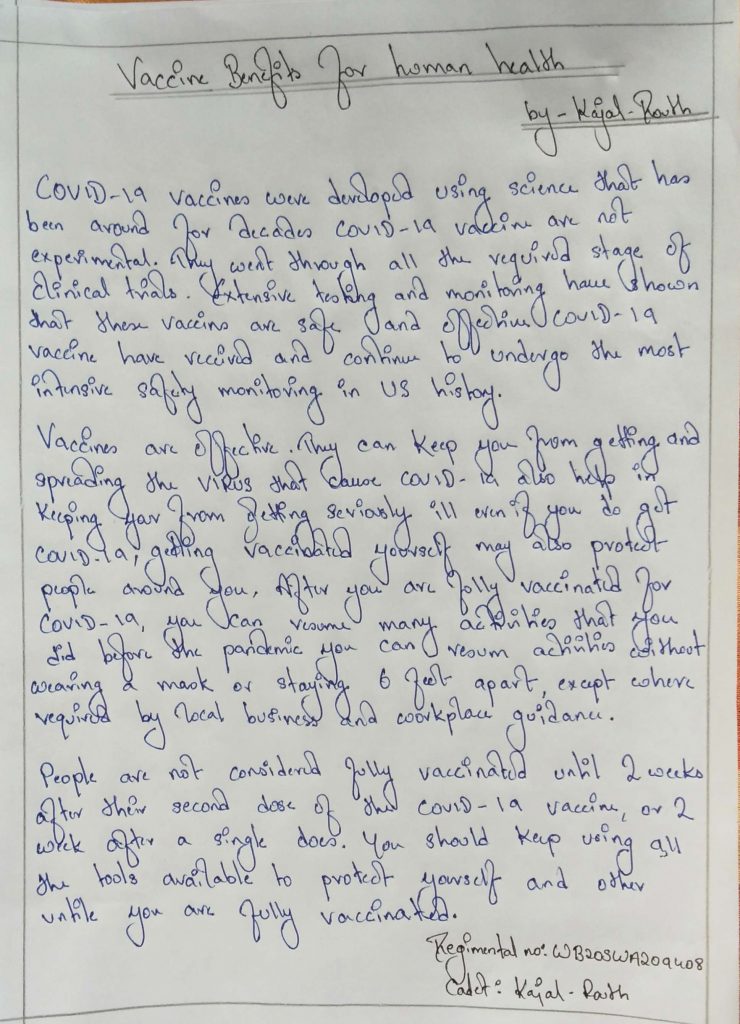 Vaccine Benefits for human health
by - Kajal - Routh
COVID-19 vaccines were developed using science that has
been around for decades COVID-19 vaccine are not
experimental. They went through all the required stage of
clinical trials. Extensive testing and monitoring have shown
that these vaccins are safe and effective COVID-19
vaccine have recived and continue to undergo the most
intensive safety monitoring in US history.
Vaccines are effective. They can keep you from getting and
spreading the VIRUS that cause COVID-19 also help in
keeping your from getting seriously ill even if you do get
COVID-19, getting vaccinated yourself may also protect
people around you. After you are fully vaccinated for
COVID-19, you can resume many activities that you
did before the pandemic you can resum activities without
wearing a mask or staying 6 feet apart, except where
required by local business and workplace guidance.
People are not considered fully vaccinated until 2 weeks
after their second dose of the COVID-19 vaccine, or 2
week after a single does. You should keep using all
the tools available to protect yourself and other
untile you are fully vaccinated.
Regimental no: WB20SWA209408
Cadet: Kajal - Routh